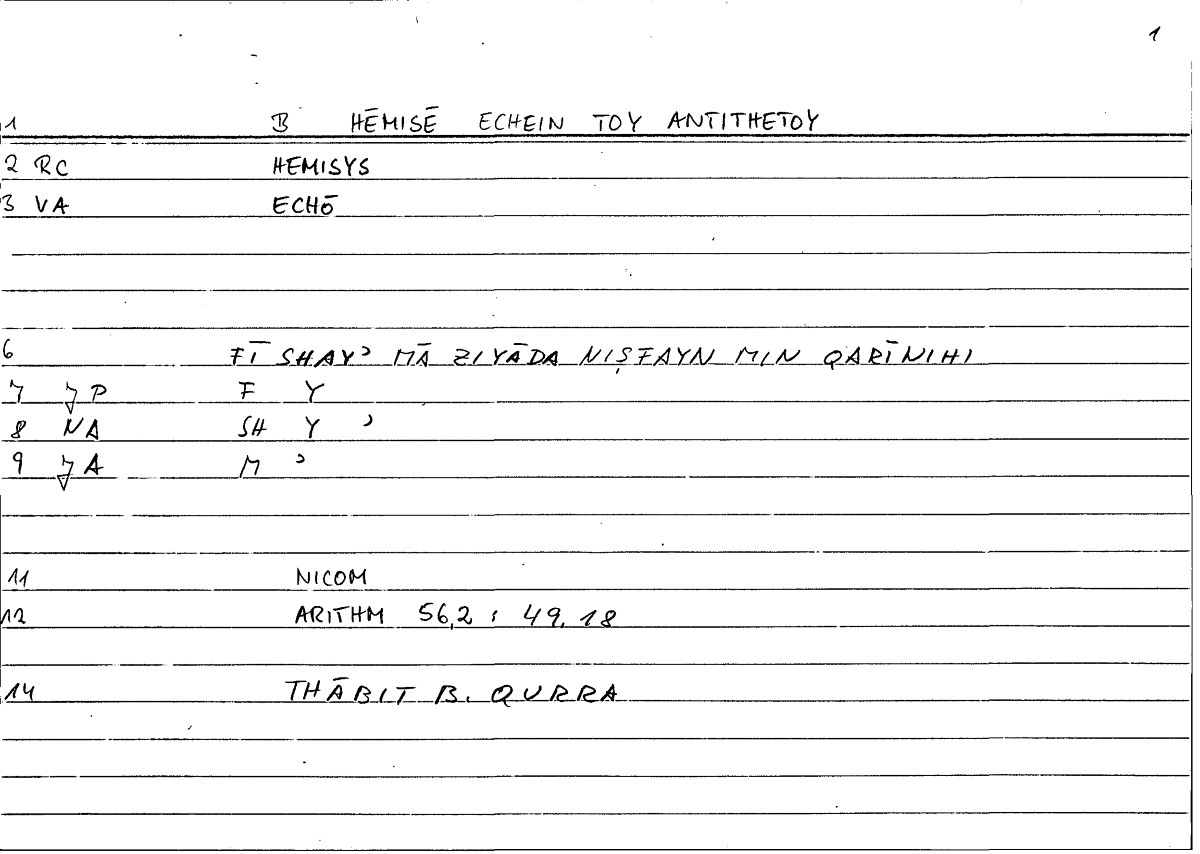 1
1 B HĒMISĒ ECHEIN TOY ANTITHETOY
2 RC HEMISYS
3 VA ECHŌ
6 FĪ SHAYʾ MĀ ZIYĀDA NIṢFAYN MIN QARĪNIHI
7 JP F Y
8 NA SH Y ʾ
9 JA M ʾ
11 NICOM
12 ARITHM 56,2 : 49.18
14 THĀBIT B. QURRA